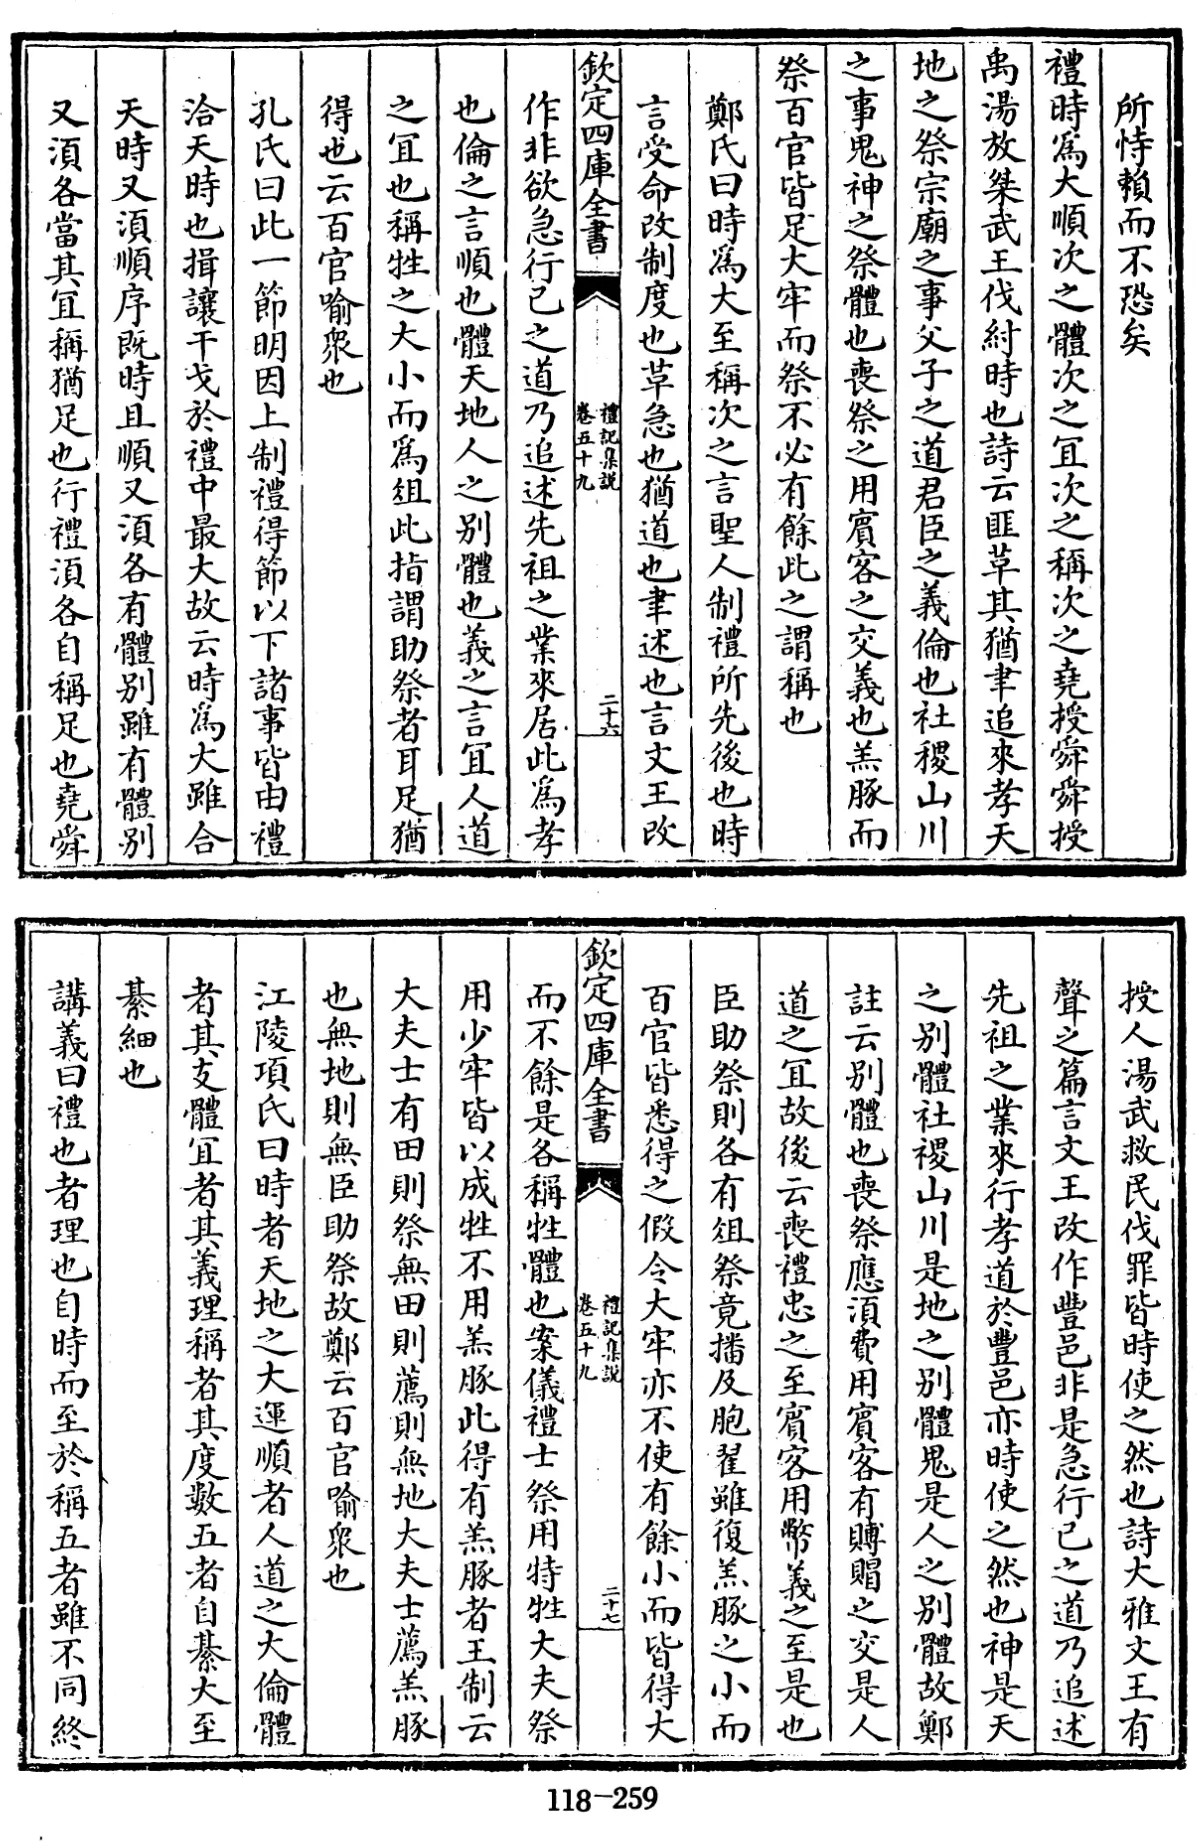 所恃賴而不恐矣
禮時爲大順次之體次之宜次之稱次之堯授舜舜授
禹湯放桀武王伐紂時也詩云匪革其猶聿追來孝天
地之祭宗廟之事父子之道君臣之義倫也社稷山川
之事鬼神之祭體也喪祭之用賔客之交義也羔豚而
祭百官皆足大牢而祭不必有餘此之謂稱也
鄭氏曰時爲大至稱次之言聖人制禮所先後也時
言受命改制度也革急也猶道也聿述也言文王改
欽定四庫全書
禮記集說
卷五十九
二十六
作非欲急行己之道乃追述先祖之業來居此爲孝
也倫之言順也體天地人之别體也義之言宜人道
之宜也稱牲之大小而爲俎此指謂助祭者耳足猶
得也云百官喻衆也
孔氏曰此一節明因上制禮得節以下諸事皆由禮
洽天時也揖讓干戈於禮中最大故云時爲大雖合
天時又湏順序既時且順又湏各有體别雖有體别
又湏各當其宜稱猶足也行禮湏各自稱足也堯舜
授人湯武救民伐罪皆時使之然也詩大雅文王有
聲之篇言文王改作豐邑非是急行已之道乃追述
先祖之業來行孝道於豐邑亦時使之然也神是天
之别體社禝山川是地之别體鬼是人之别體故鄭
註云别體也喪祭應湏費用賔客有賻賵之交是人
道之宜故後云喪禮忠之至賔客用幣義之至是也
臣助祭則各有俎祭竟播及胞翟雖復羔豚之小而
百官皆悉得之假令大牢亦不使有餘小而皆得大
欽定四庫全書
禮記集說
卷五十九
二十七
而不餘是各稱牲體也案儀禮士祭用特牲大夫祭
用少牢皆以成牲不用羔豚此得有羔豚者王制云
大夫士有田則祭無田則薦則無地大夫士薦羔豚
也無地則無臣助祭故鄭云百官喻衆也
江陵項氏曰時者天地之大運順者人道之大倫體
者其支體宜者其義理稱者其度數五者自綦大至
綦細也
講義曰禮也者理也自時而至於稱五者雖不同終
118-259